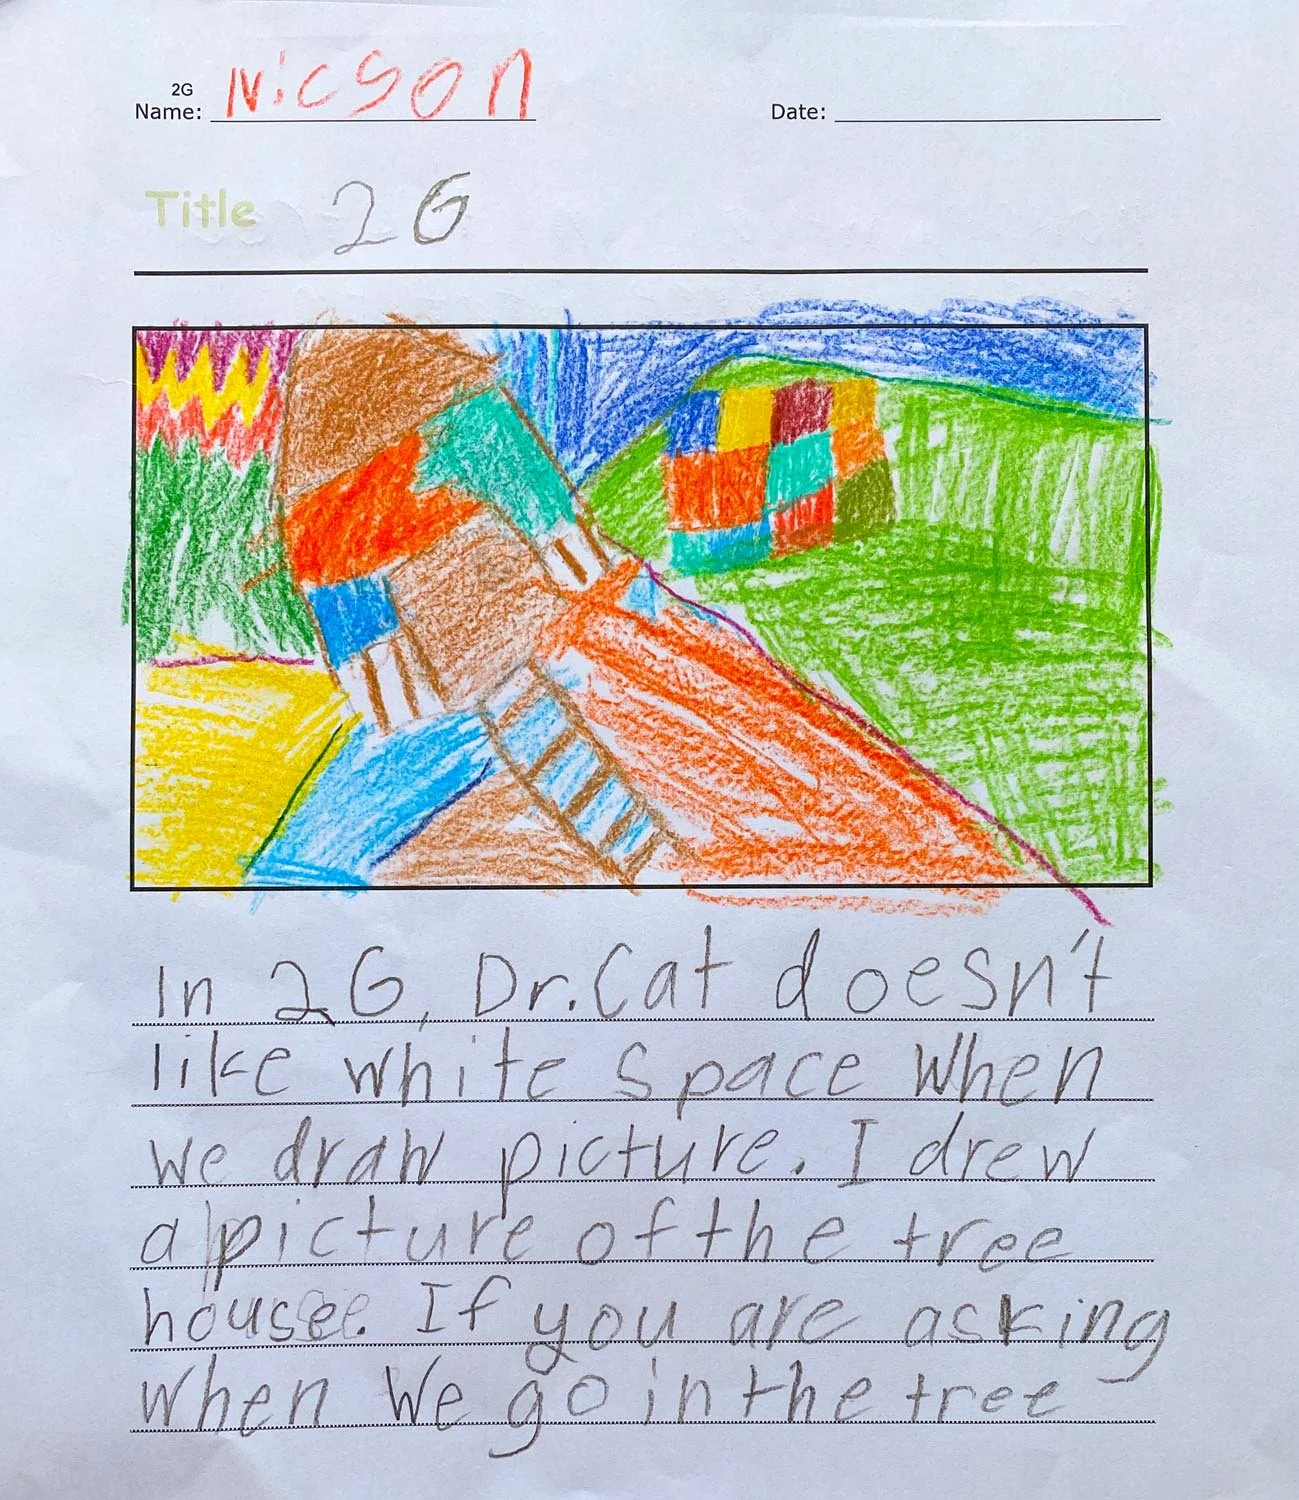 2G
Name: Nicson Date:
Title 2G
In 2G, Dr. Cat doesn't
like white space when
we draw picture. I drew
a picture of the tree
house. If you are asking
when we go in the tree